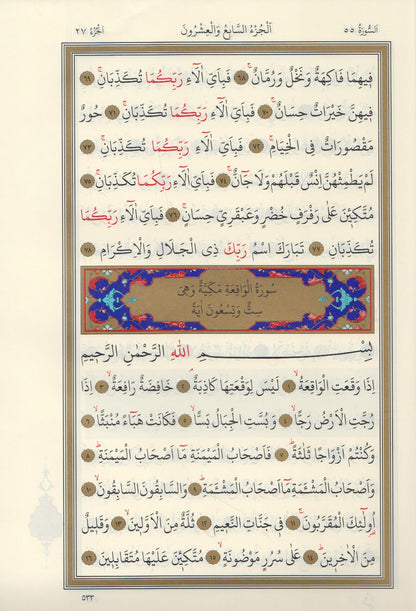 اَلسُّورَةُ ٥٥ اَلْجُزْءُ السَّابِعُ وَالْعِشْرُونَ اَلْجُزْءُ ٢٧
فِيهِمَا فَاكِهَةٌ وَنَخْلٌ وَرُمَّانٌۚ ﴿٦٨﴾ فَبِاَيِّ اٰلَٓاءِ رَبِّكُمَا تُكَذِّبَانِۚ ﴿٦٩﴾
فِيهِنَّ خَيْرَاتٌ حِسَانٌۚ ﴿٧٠﴾ فَبِاَيِّ اٰلَٓاءِ رَبِّكُمَا تُكَذِّبَانِۚ ﴿٧١﴾ حُورٌ
مَقْصُورَاتٌ فِي الْخِيَامِۚ ﴿٧٢﴾ فَبِاَيِّ اٰلَٓاءِ رَبِّكُمَا تُكَذِّبَانِۚ ﴿٧٣﴾
لَمْ يَطْمِثْهُنَّ اِنْسٌ قَبْلَهُمْ وَلَا جَٓانٌّۚ ﴿٧٤﴾ فَبِاَيِّ اٰلَٓاءِ رَبِّكُمَا تُكَذِّبَانِۚ ﴿٧٥﴾
مُتَّكِـِٔينَ عَلٰى رَفْرَفٍ خُضْرٍ وَعَبْقَرِيٍّ حِسَانٍۚ ﴿٧٦﴾ فَبِاَيِّ اٰلَٓاءِ رَبِّكُمَا
تُكَذِّبَانِ ﴿٧٧﴾ تَبَارَكَ اسْمُ رَبِّكَ ذِي الْجَلَالِ وَالْاِكْرَامِ ﴿٧٨﴾
سُورَةُ الْوَاقِعَةِ مَكِّيَّةٌ وَهِيَ
سِتٌّ وَتِسْعُونَ اٰيَةً
بِسْمِ اللّٰهِ الرَّحْمٰنِ الرَّحِيمِ
اِذَا وَقَعَتِ الْوَاقِعَةُۙ ﴿١﴾ لَيْسَ لِوَقْعَتِهَا كَاذِبَةٌۢ ﴿٢﴾ خَافِضَةٌ رَافِعَةٌۙ ﴿٣﴾ اِذَا
رُجَّتِ الْاَرْضُ رَجًّاۙ ﴿٤﴾ وَبُسَّتِ الْجِبَالُ بَسًّاۙ ﴿٥﴾ فَكَانَتْ هَبَٓاءً مُنْبَثًّاۙ ﴿٦﴾
وَكُنْتُمْ اَزْوَاجًا ثَلٰثَةًۜ ﴿٧﴾ فَاَصْحَابُ الْمَيْمَنَةِ مَٓا اَصْحَابُ الْمَيْمَنَةِۜ ﴿٨﴾
وَاَصْحَابُ الْمَشْـَٔمَةِ مَٓا اَصْحَابُ الْمَشْـَٔمَةِۜ ﴿٩﴾ وَالسَّابِقُونَ السَّابِقُونَۙ ﴿١٠﴾
اُو۬لٰٓئِكَ الْمُقَرَّبُونَۚ ﴿١١﴾ فِي جَنَّاتِ النَّعِيمِ ﴿١٢﴾ ثُلَّةٌ مِنَ الْاَوَّلِينَۙ ﴿١٣﴾ وَقَلِيلٌ
مِنَ الْاٰخِرِينَۜ ﴿١٤﴾ عَلٰى سُرُرٍ مَوْضُونَةٍۙ ﴿١٥﴾ مُتَّكِـِٔينَ عَلَيْهَا مُتَقَابِلِينَ ﴿١٦﴾
٥٣٣